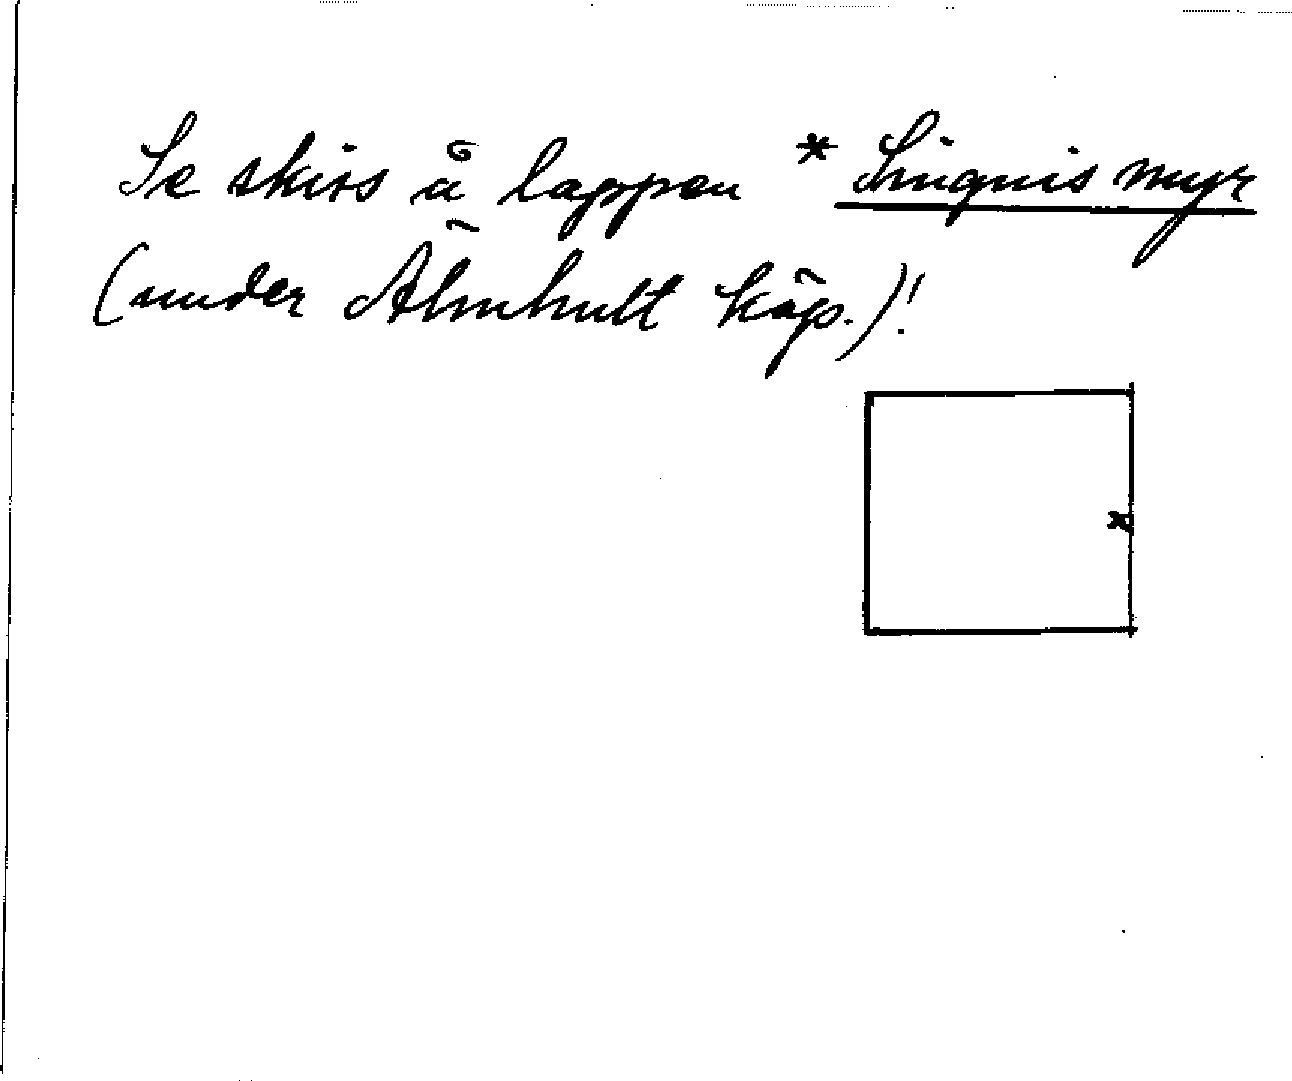 Se skiss å lappen * Linqnis myr
(under Älmhult köp.)!
x